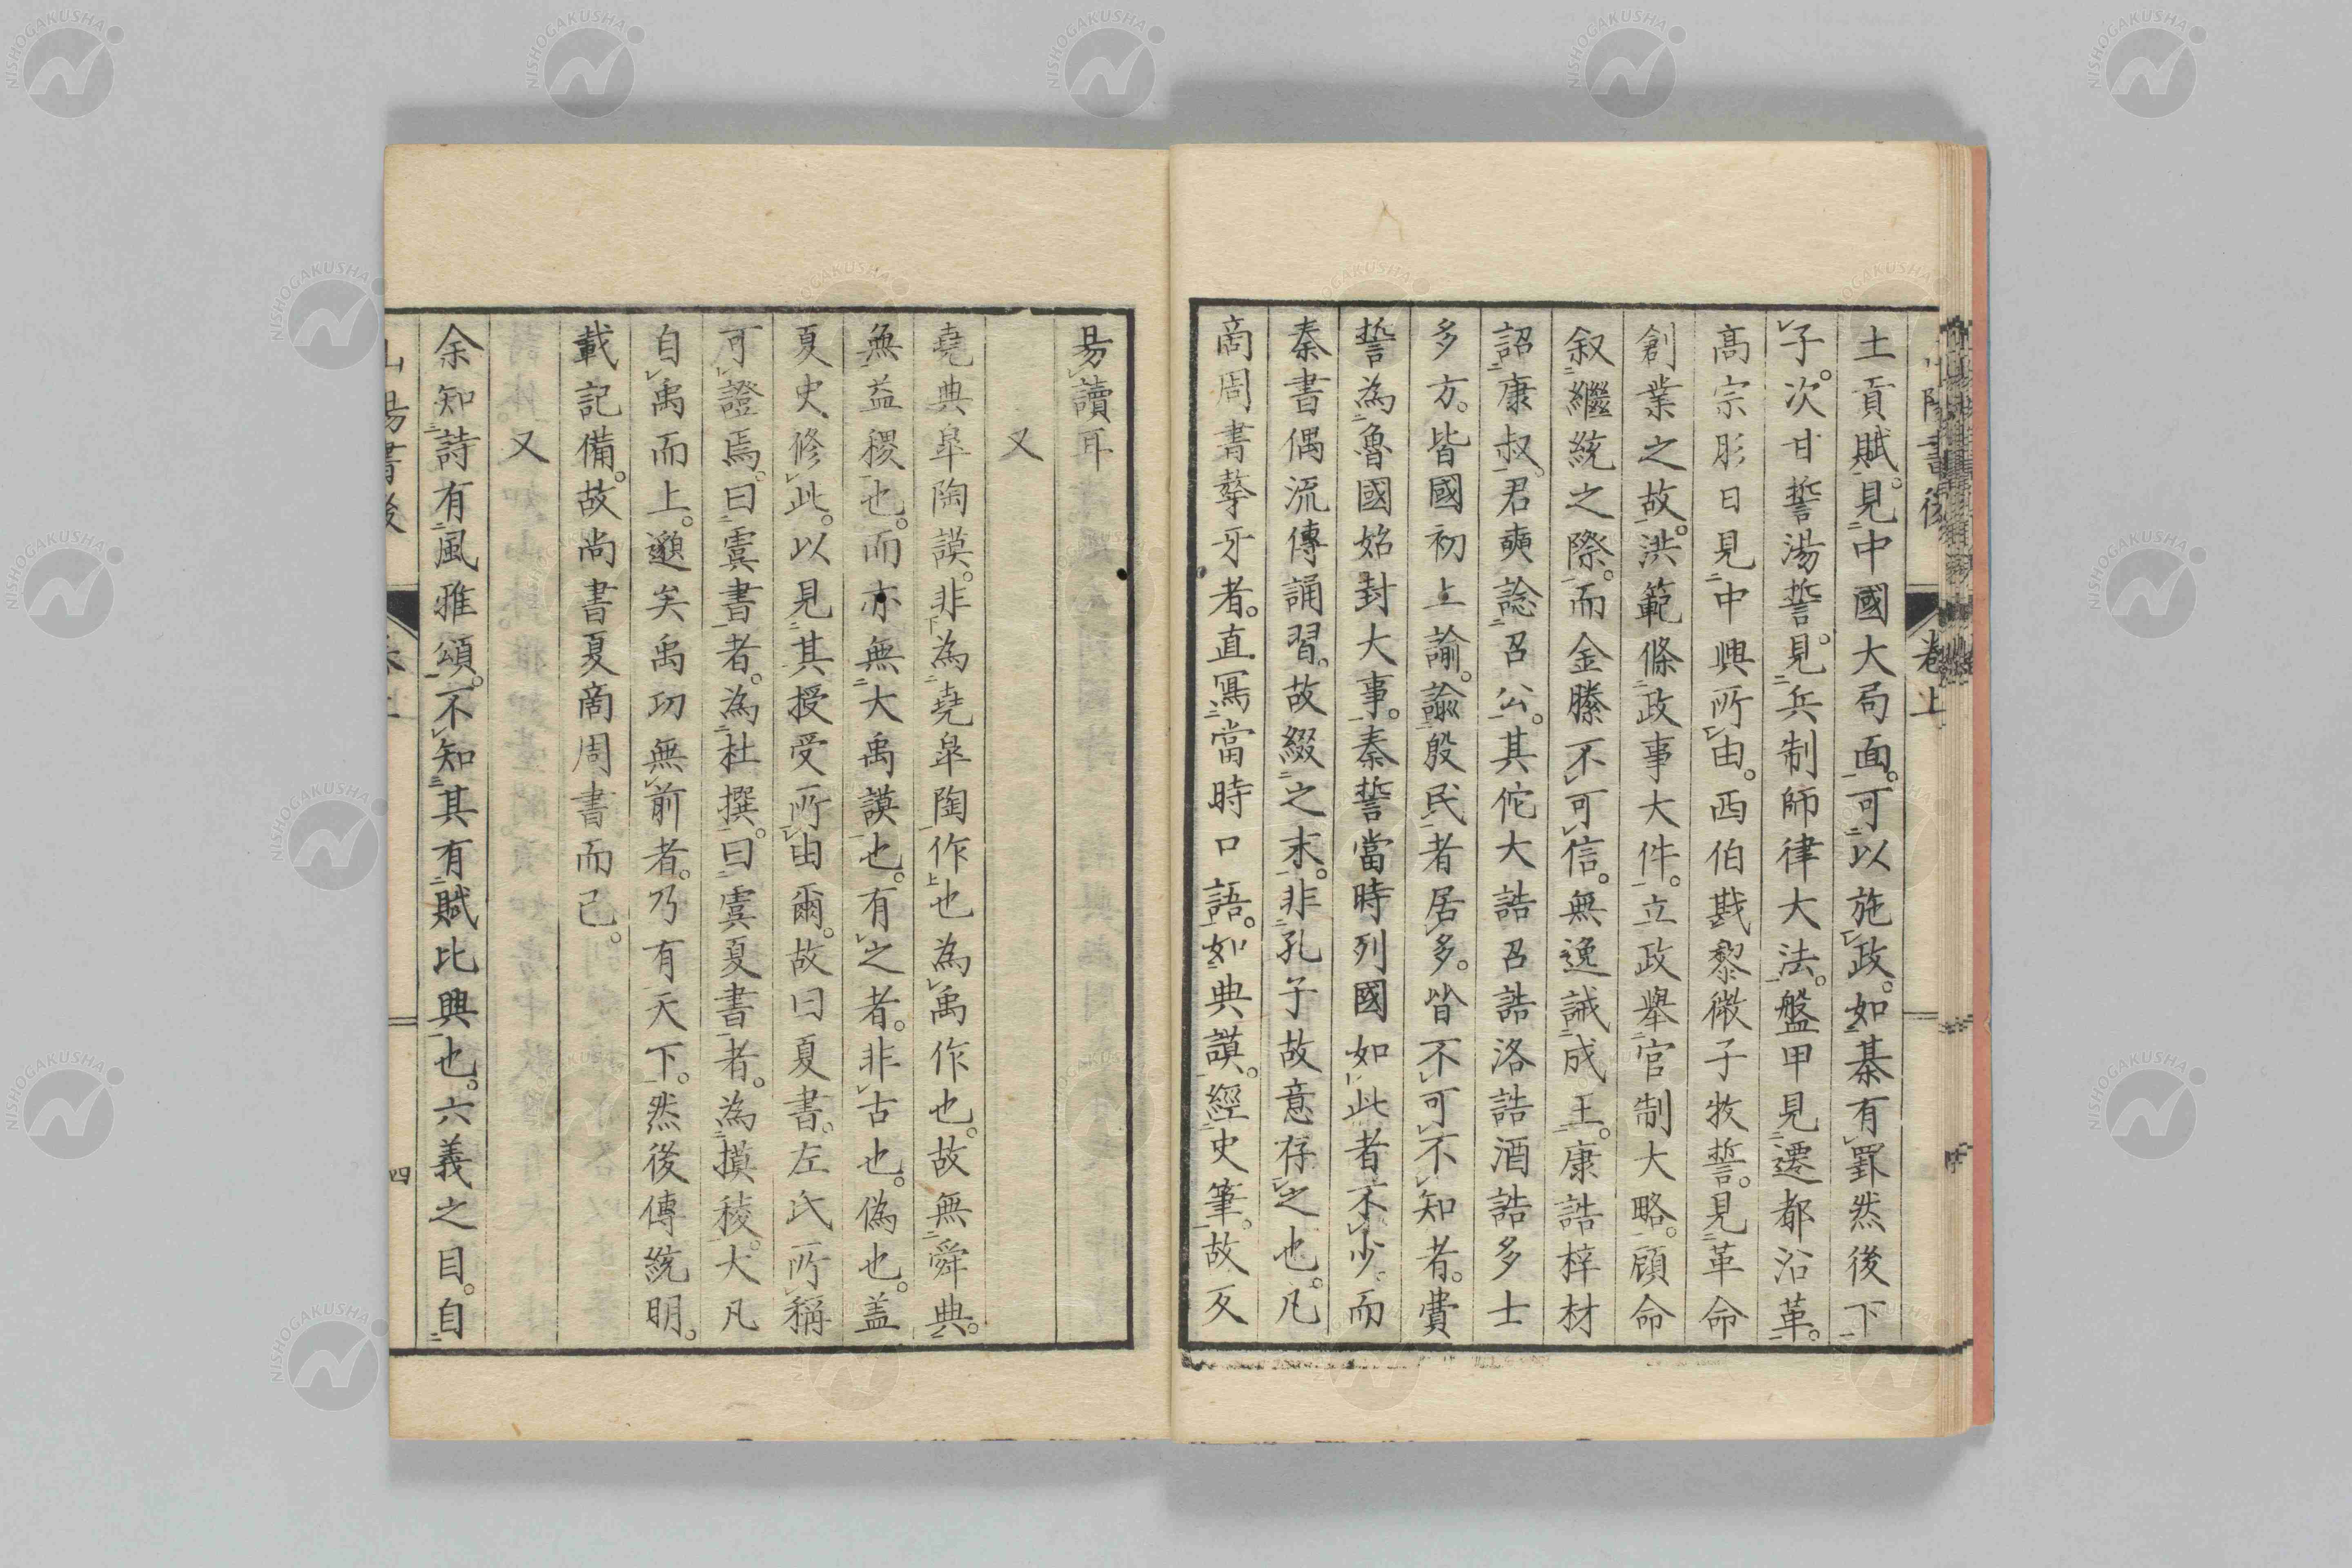 山陽書後 卷上
土貢賦。見中國大局面。可以施政。如棊有罫然後下
子。次甘誓湯誓。見兵制師律大法。盤甲見遷都沿革。
高宗肜日見中興所由。西伯戡黎微子牧誓。見革命
創業之故。洪範條政事大件。立政舉官制大略。顧命
叙繼統之際。而金縢不可信。無逸誡成王。康誥梓材
詔康叔。君奭諗召公。其佗大誥召誥洛誥酒誥多士
多方。皆國初上諭。諭殷民者居多。皆不可不知者。費
誓為魯國始封大事。秦誓當時列國如此者不少。而
秦書偶流傳誦習。故綴之末。非孔子故意存之也。凡
商周書聱牙者。直寫當時口語。如典謨。經史筆。故反
易讀耳
又
堯典皐陶謨。非為堯皐陶作也為禹作也。故無舜典。
無益稷也。而亦無大禹謨也。有之者。非古也。偽也。盖
夏史修此。以見其授受所由爾。故曰夏書。左氏所稱
可證焉。曰虞書者。為杜撰。曰虞夏書者。為摸稜。大凡
自禹而上。邈矣禹功無前者。乃有天下。然後傳統明。
載記備。故尚書夏商周書而已。
又
余知詩有風雅頌。不知其有賦比興也。六義之目。自
山陽書後 卷上 四
NISHOGAKUSHA